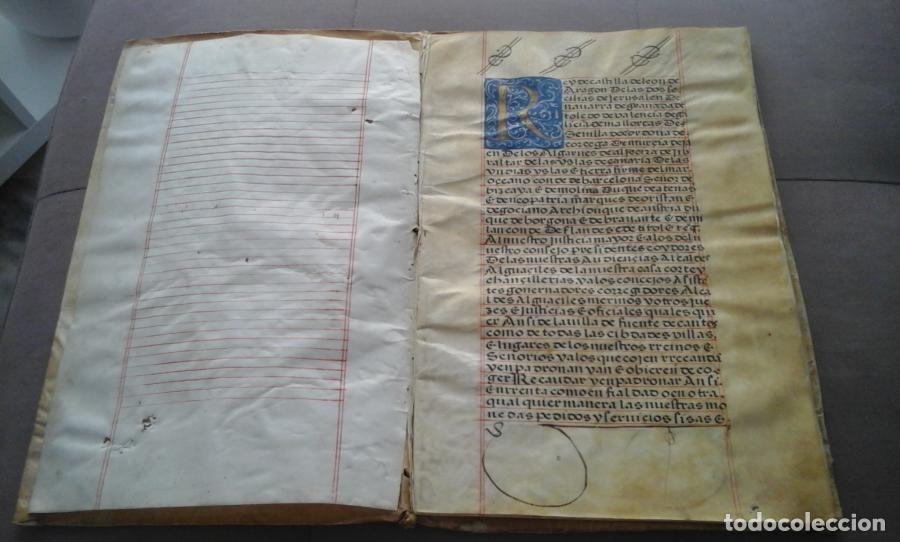 R
ey de castilla de leon de
Aragon De las dos se
cilias de Jerusalen De
navarra de granada de
toledo de valencia de ga
licia de mallorcas De
Sevilla de cordova de
corcega De murcia de ja
en De los Algarves de algezira de gib
raltar de las yslas de canaria De las
yndias yslas E tierra firme del mar
oceano conde de barcelona Señor de
bizcaya E de molina Duque de atenas
E de neopatria marques de oristan E
de gociano Archiduque de austria du
que de borgona E de bravante E de mi
lan conde De flandes e de tirol E Rc̃
Al nuestro Justicia mayor E a los del
nuestro consejo presidentes E oydores
De las nuestras Audiencias Alcaldes
Alguaciles de la nuestra casa corte y
chancillerias y a los concejos Asiste
tes governadores corregidores Alcal
des Alguaciles merinos y otros jue
zes E Justicias E oficiales quales qui
er Ansi de la villa de fuente de cantos
como de todas las cibdades villas
E lugares de los nuestros rreinos E
Señorios y a los que cojen E rrecauda
y enpadronan y an E obieren de co
ger Recaudar y enpadronar Ansi
En rrenta como en fialdad o en otra
qual quier manera las nuestras mo
nedas pedidos y servicios sisas E
todocoleccion